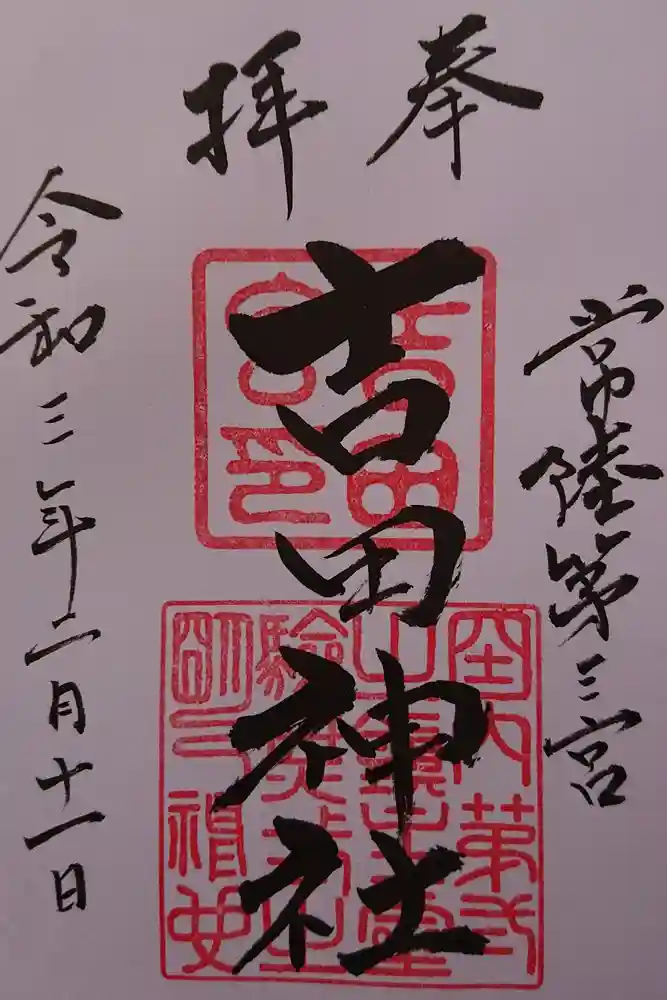 奉拝
常陸第三宮
吉田神社
吉田宮印
令和三年二月十一日